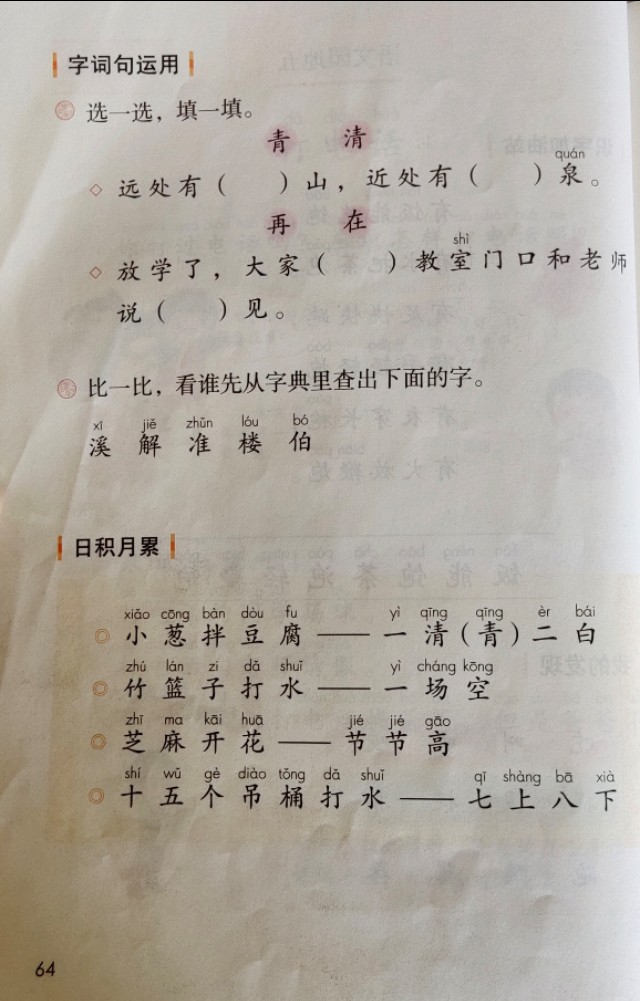 字词句运用
选一选，填一填。
青 清
quán
远处有（ ）山，近处有（ ）泉。
再 在
shì
放学了，大家（ ）教室门口和老师
说（ ）见。
比一比，看谁先从字典里查出下面的字。
xī jiě zhǔn lóu bó
溪 解 准 楼 伯
日积月累
xiǎo cōng bàn dòu fu yì qīng qīng èr bái
小葱拌豆腐——一清（青）二白
zhú lán zi dǎ shuǐ yì cháng kōng
竹篮子打水——一场空
zhī ma kāi huā jié jié gāo
芝麻开花——节节高
shí wǔ gè diào tǒng dǎ shuǐ qī shàng bā xià
十五个吊桶打水——七上八下
64